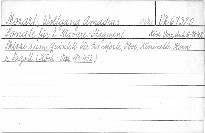 Mozart, Wolfgang Amadeus
Sonate für 2 Klaviere - Fragment
Skizze zum Quintett für Pianoforte, Oboe, Klarinette, Horn
u. Fagott (Köch. Verz. Nr. 452)